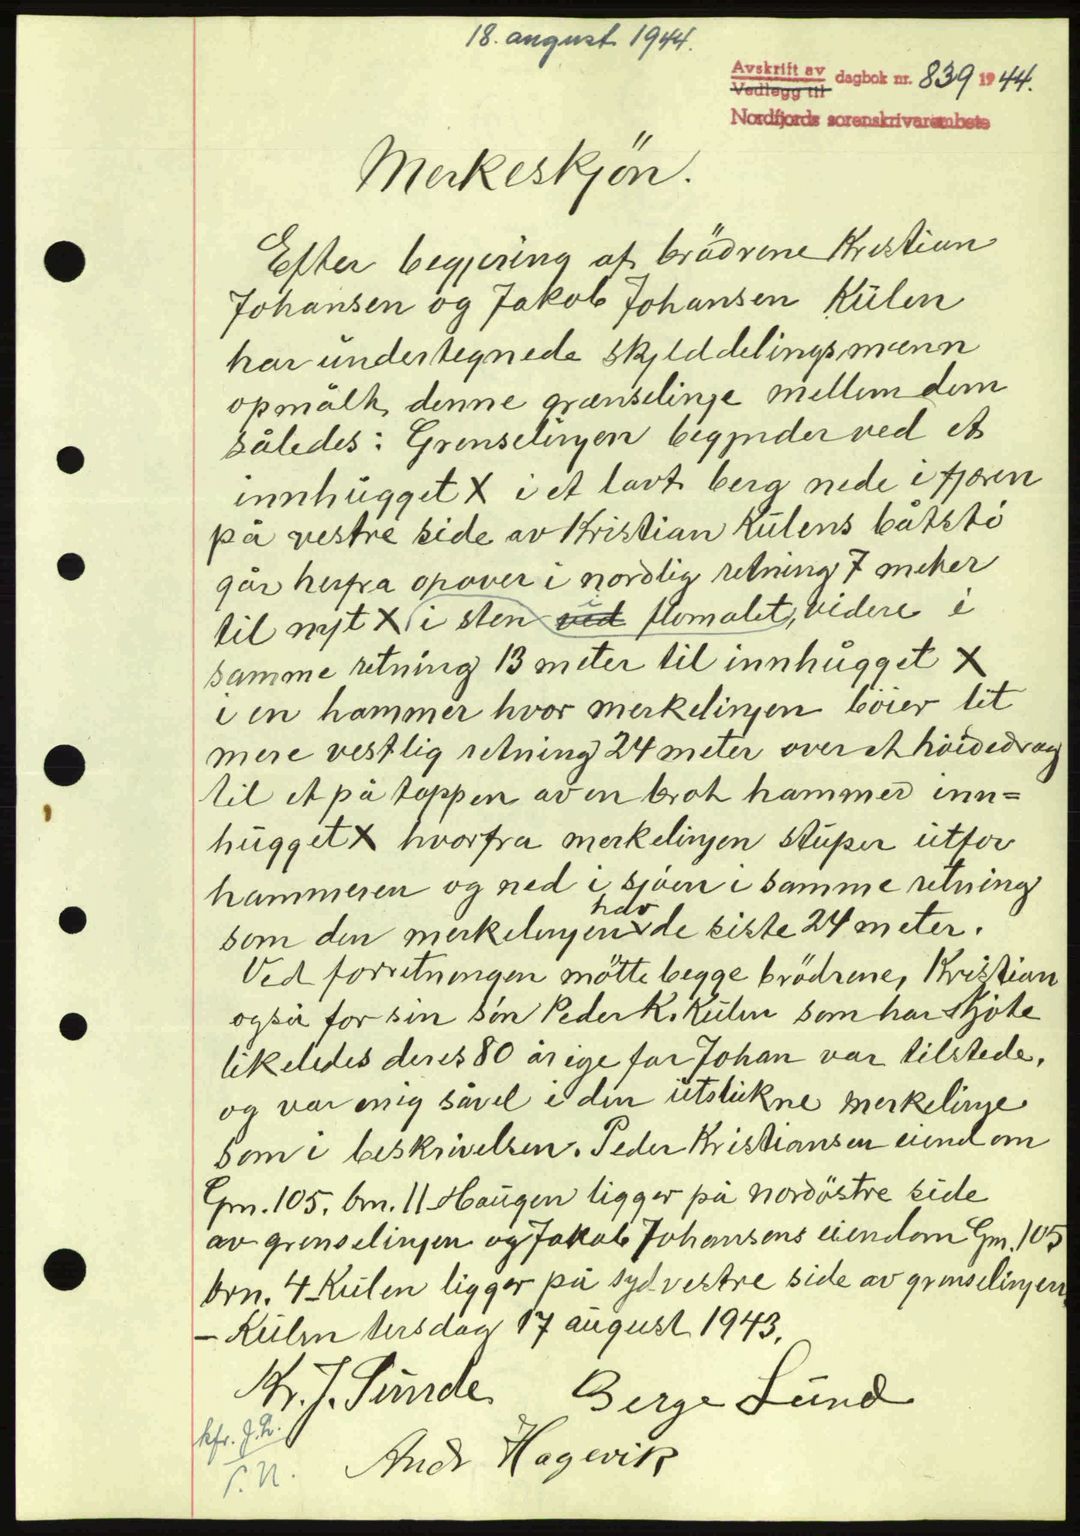 18. august 1944.
Avskrift av
Vedlegg til
dagbok nr. 839 1944.
Nordfjords sorenskrivarembete
Merkeskjön.
Efter begjæring af brödrene Kristian
Johansen og Jakob Johansen Külen
har undertegnede skylddelingsmænn
opmålt denne grænselinje mellem dem
således: Grenselinjen begynder ved et
innhügget X i et lavt berg nede i fjæren
på vestre side av Kristian Külens båtstö
går herfra opover i nordlig retning 7 meter
til nyt X i sten ved i flomålet, videre i
samme retning 13 meter til innhügget X
i en hammer hvor merkelinjen böier lit
mere vestlig retning 24 meter over et höidedrag
til et på toppen av en brat hammer inn=
hügget X hvorfra merkelinjen stüper ütfor
hammeren og ned i sjöen i samme retning
som den merkelinjen har de siste 24 meter.
Ved forretningen mötte begge brödrene, Kristian
også for sin sön Peder K. Külen som har skjöte
likeledes deres 80 årige far Johan var tilstede,
og var enig såvel i den ütstükne merkelinje
som i beskrivelsen. Peder Kristiansen eiendom
Grn. 105. brn. 11 Haügen ligger på nordöstre side
av grenselinjen og Jakob Johansens eiendom Grn. 105
brn. 4 Külen ligger på sydvestre side av grenselinjen
– Külen tirsdag 17 aügust 1943.
Kr. J. Sünde Berge Lünd
kfr. J.R.
Andr Hagevik
S.N.